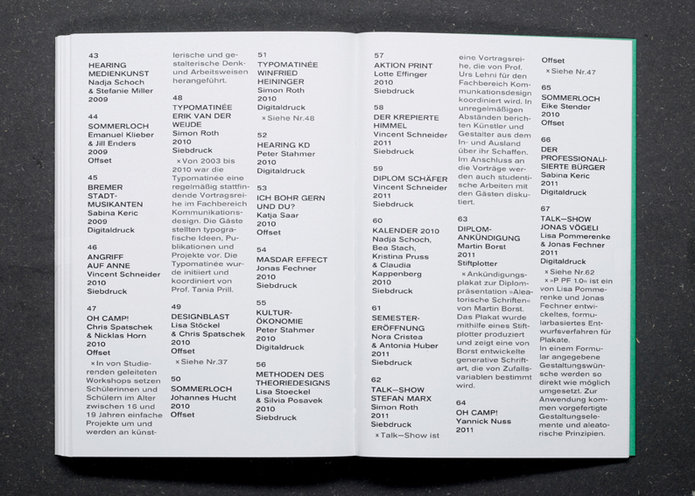 43
HEARING
MEDIENKUNST
Nadja Schoch
& Stefanie Miller
2009
44
SOMMERLOCH
Emanuel Klieber
& Jill Enders
2009
Offset
45
BREMER
STADT-
MUSIKANTEN
Sabina Keric
2009
Digitaldruck
46
ANGRIFF
AUF ANNE
Vincent Schneider
2010
Siebdruck
47
OH CAMP!
Chris Spatschek
& Nicklas Horn
2010
Offset
×In von Studie-
renden geleiteten
Workshops setzen
Schülerinnen und
Schülern im Alter
zwischen 16 und
19 Jahren einfache
Projekte um und
werden an künst-
lerische und ge-
stalterische Denk-
und Arbeitsweisen
herangeführt.
48
TYPOMATINÉE
ERIK VAN DER
WEIJDE
Simon Roth
2010
Siebdruck
×Von 2003 bis
2010 war die
Typomatinée eine
regelmäßig stattfin-
dende Vortragsrei-
he im Fachbereich
Kommunikations-
design. Die Gäste
stellten typogra-
fische Ideen, Pu-
blikationen und
Projekte vor. Die
Typomatinée wur-
de initiiert und
koordiniert von
Prof. Tania Prill.
49
DESIGNBLAST
Lisa Stöckel
& Chris Spatschek
2010
×Siehe Nr.37
50
SOMMERLOCH
Johannes Hucht
2010
Offset
51
TYPOMATINÉE
WINFRIED
HEININGER
Simon Roth
2010
Digitaldruck
×Siehe Nr.48
52
HEARING KD
Peter Stahmer
2010
Digitaldruck
53
ICH BOHR GERN
UND DU?
Katja Saar
2010
Offset
54
MASDAR EFFECT
Jonas Fechner
2010
Siebdruck
55
KULTUR-
ÖKONOMIE
Peter Stahmer
2010
Digitaldruck
56
METHODEN DES
THEORIEDESIGNS
Lisa Stoeckel
& Silvia Posavek
2010
Siebdruck
57
AKTION PRINT
Lotte Effinger
2010
Siebdruck
58
DER KREPIERTE
HIMMEL
Vincent Schneider
2011
Siebdruck
59
DIPLOM SCHÄFER
Vincent Schneider
2011
Siebdruck
60
KALENDER 2010
Nadja Schoch,
Bea Stach,
Kristina Pruss
& Claudia
Kappenberg
2010
Siebdruck
61
SEMESTER-
ERÖFFNUNG
Nora Cristea
& Antonia Huber
2011
Siebdruck
62
TALK–SHOW
STEFAN MARX
Simon Roth
2011
Siebdruck
×Talk–Show ist
eine Vortragsrei-
he, die von Prof.
Urs Lehni für den
Fachbereich Kom-
munikationsdesign
koordiniert wird. In
unregelmäßigen
Abständen berich-
ten Künstler und
Gestalter aus dem
In- und Ausland
über ihr Schaffen.
Im Anschluss an
die Vorträge wer-
den auch studenti-
sche Arbeiten mit
den Gästen disku-
tiert.
63
DIPLOM-
ANKÜNDIGUNG
Martin Borst
2011
Stiftplotter
×Ankündigungs-
plakat zur Diplom-
präsentation »Alea-
torische Schriften«
von Martin Borst.
Das Plakat wurde
mithilfe eines Stift-
plotter produziert
und zeigt eine von
Borst entwickelte
generative Schrift-
art, die von Zufalls-
variablen bestimmt
wird.
64
OH CAMP!
Yannick Nuss
2011
Offset
×Siehe Nr.47
65
SOMMERLOCH
Eike Stender
2010
Offset
66
DER
PROFESSIONALI-
SIERTE BÜRGER
Sabina Keric
2011
Digitaldruck
67
TALK–SHOW
JONAS VÖGELI
Lisa Pommerenke
& Jonas Fechner
2011
Digitaldruck
×Siehe Nr.62
×»P PF 1.0« ist ein
von Lisa Pomme-
renke und Jonas
Fechner entwi-
ckeltes, formu-
larbasiertes Ent-
wurfsverfahren für
Plakate.
In einem Formu-
lar angegebene
Gestaltungswün-
sche werden so
direkt wie möglich
umgesetzt. Zur
Anwendung kom-
men vorgefertigte
Gestaltungsele-
mente und aleato-
rische Prinzipien.